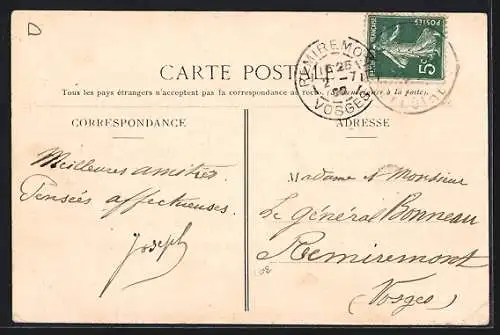 D
POSTES
5c
REMIREMONT
VOSGES
CARTE POSTALE
Tous les pays étrangers n'acceptent pas la correspondance au recto
CORRESPONDANCE
ADRESSE
Meilleures amitiés.
Pensées affectueuses.
Joseph
Madame et Monsieur
Le général Bonneau
Remiremont
(Vosges)